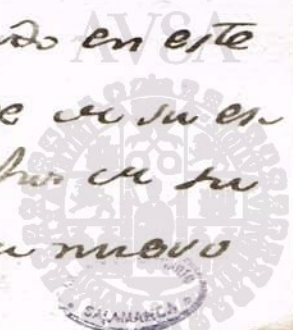 AVSA
do en este
e en su es-
en su
nuevo
SALAMANCA